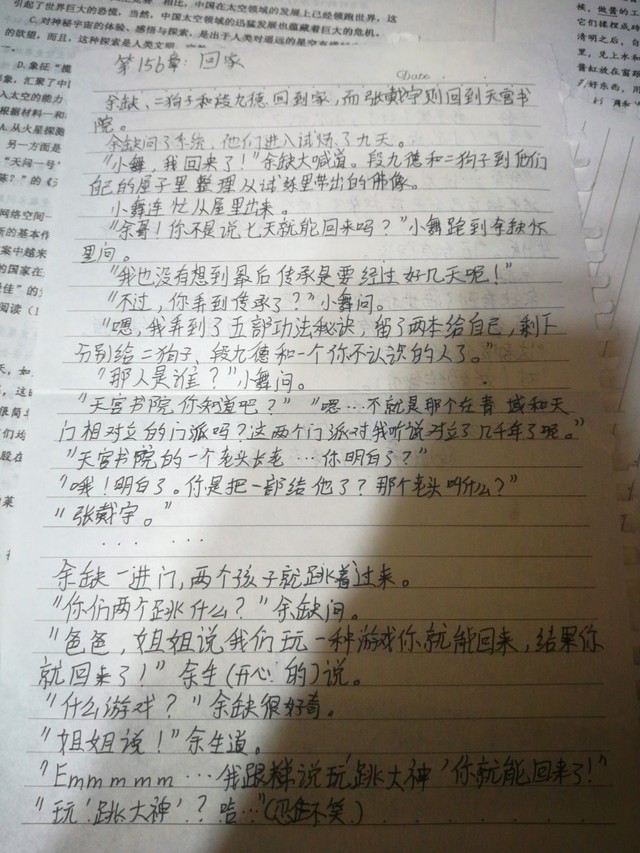 引起了世界巨大的恐慌，当然，中国太空领域的迅猛发展也蕴藏着巨大的危机。
C.对神秘宇宙的体验、感悟与探索，是出于人类对遥远的星空
的欲望，而且，这种探索是人类文明
第156章：回家
Date
余缺、二狗子和段九德回到家，而张戴宇则回到天宫书
院。
余缺问了系统，他们进入试炼了九天。
“小舞，我回来了！”余缺大喊道。段九德和二狗子到他们
自己的屋子里整理从试炼里带出的佛像。
小舞连忙从屋里出来。
“余哥！你不是说七天就能回来吗？”小舞跑到余缺怀
里问。
“我也没有想到最后传承是要经性好几天呢！”
“不过，你弄到传承了？”小舞问。
“嗯，我弄到了五部功法秘诀，留了两本给自己，剩下
分别给二狗子、段九德和一个你不认识的人了。”
“那人是谁？”小舞问。
“天宫书院你知道吧？”“嗯…不就是那个在青域和天
门相对立的门派吗？这两个门派对我听说对立了几千年了呢。”
“天宫书院的一个老头长老…你明白了？”
“哦！明白了。你是把一部给他了？那个老头叫什么？”
“张戴宇。”
······
余缺一进门，两个孩子就跳着过来。
“你们两个在跳什么？”余缺问。
“爸爸，姐姐说我们玩一种游戏你就能回来，结果你
就回来了！”余生(开心的)说。
“什么游戏？”余缺很好奇。
“姐姐说！”余生道。
“Emmmmm…我跟糖说玩‘跳大神’你就能回来了！”
“玩‘跳大神’？哈…”(忍住不笑)